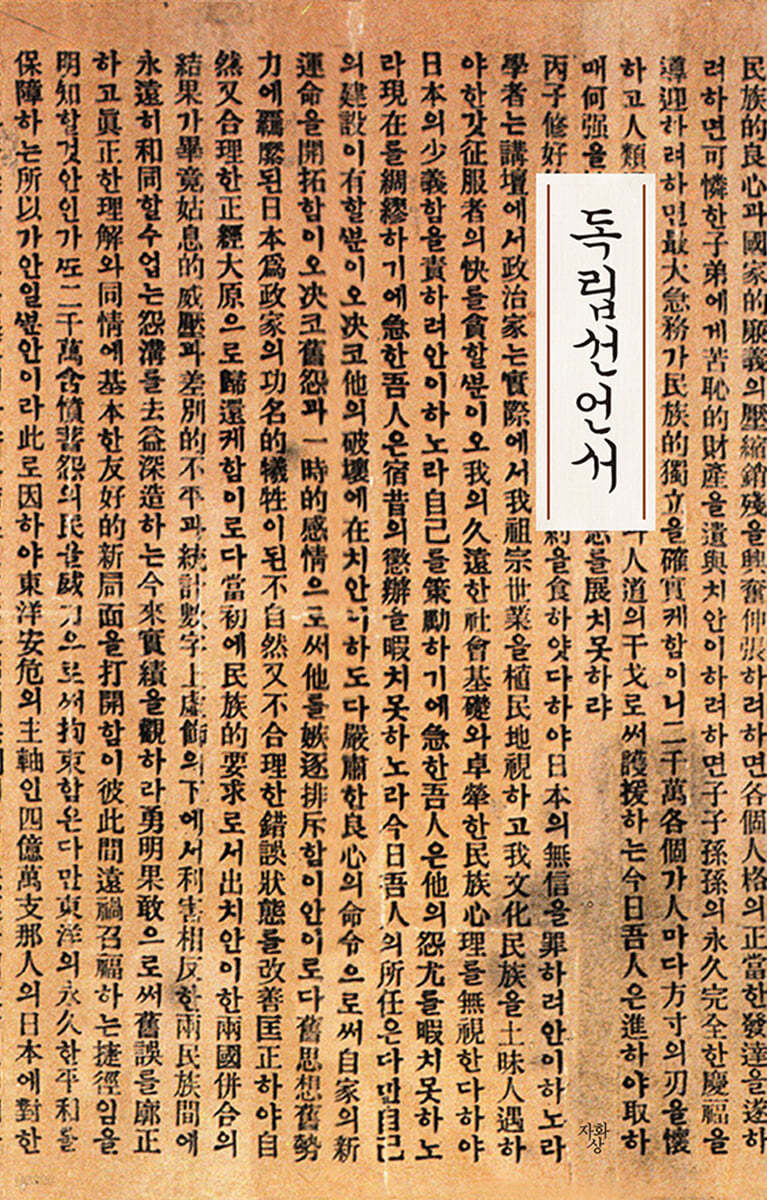 독립선언서
民族的良心과國家的廉義의壓縮銷殘을興奮伸張하려하면各個人格의正當한發達을遂하
려하면可憐한子弟에게苦恥的財產을遺與치안이하려하면子子孫孫의永久完全한慶福을
導迎하려하면最大急務가民族的獨立을確實케함이니二千萬各個가人마다方寸의刃을懷
하고人類 人道의干戈로써護援하는今日吾人은進하야取하
매何强을 를展치못하랴
丙子修好 約을食하얏다하야日本의無信을罪하려안이하노라
學者는講壇에서政治家는實際에서我祖宗世業을植民地視하고我文化民族을土昧人遇하
야한갓征服者의快를貪할ᄲᅮᆫ이오我의久遠한社會基礎와卓犖한民族心理를無視한다하야
日本의少義함을責하려안이하노라自己를策勵하기에急한吾人은他의怨尤를暇치못하노
라現在를綢繆하기에急한吾人은宿昔의懲辦을暇치못하노라今日吾人의所任은다만自己
의建設이有할ᄲᅮᆫ이오決코他의破壞에在치안이하도다嚴肅한良心의命令으로써自家의新
運命을開拓함이오決코舊怨과一時的感情으로써他를嫉逐排斥함이안이로다舊思想舊勢
力에羈縻된日本爲政家의功名的犧牲이된不自然又不合理한錯誤狀態를改善匡正하야自
然又合理한正經大原으로歸還케함이로다當初에民族的要求로서出치안이한兩國併合의
結果가畢竟姑息的威壓과差別的不平과統計數字上虛飾의下에서利害相反한兩民族間에
永遠히和同할수업는怨溝를去益深造하는今來實績을觀하라勇明果敢으로써舊誤를廓正
하고眞正한理解와同情에基本한友好的新局面을打開함이彼此間遠禍召福하는捷徑임을
明知할것안인가ᄯᅩ二千萬含憤蓄怨의民을威力으로써拘束함은다만東洋의永久한平和를
保障하는所以가안일ᄲᅮᆫ안이라此로因하야東洋安危의主軸인四億萬支那人의日本에對한
자화상